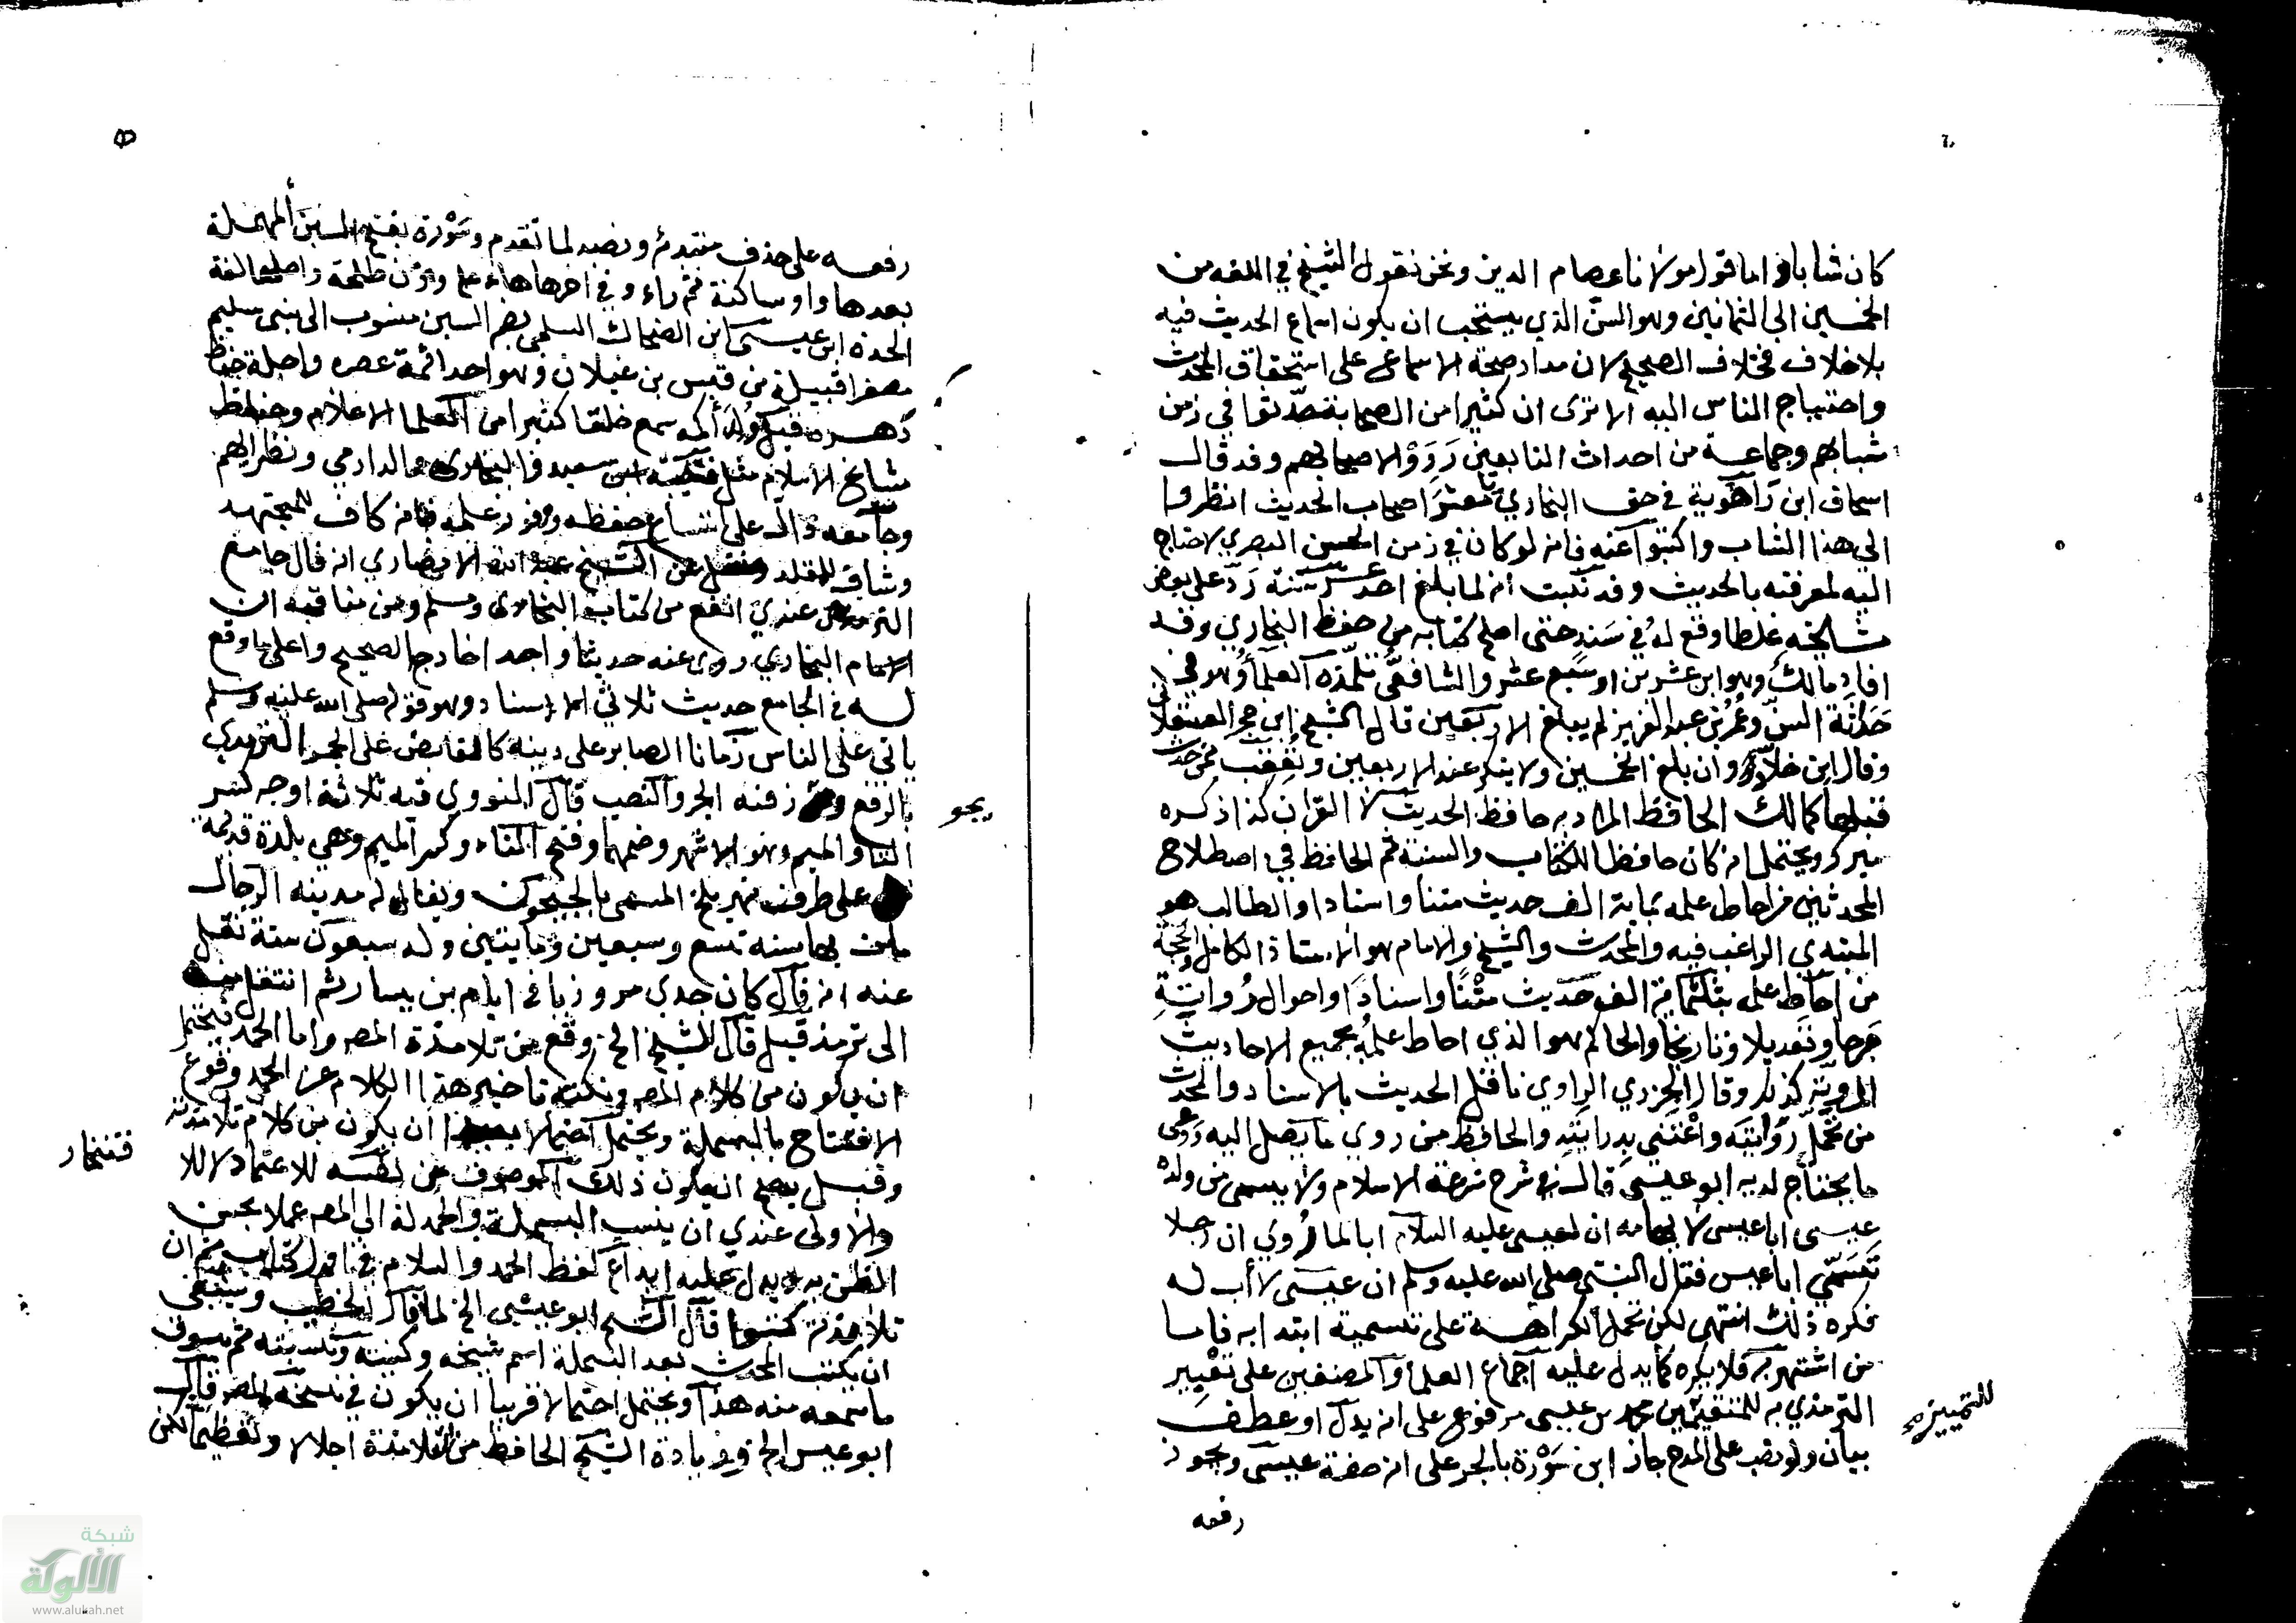 كان شابا اما قول مولانا عصام الدين ونحن نقول الشيخ في اللغة من
الخمسين الى الثمانين وهو السن الذي يستحب ان يكون اسماع الحديث فيه
بلا خلاف فخلاف الصحيح لان مدار صحة الاسماع على استحقاق المحدث
واحتياج الناس اليه الا ترى ان كثيرا من الصحابة تصدثوا في زمن
شبابهم وجماعة من احداث التابعين رووا لاصحابهم وقد قال
اسحاق ابن راهوية في حق البخاري يا معشر اصحاب الحديث انظروا
الى هذا الشاب واكتبوا عنه فانه لو كان في زمن الحسن البصري لاحتاج
اليه لمعرفته بالحديث وقد ثبت انه لما بلغ احد عشر سنة رد على بعض
مشايخه غلطا وقع له في سند حتى اصلح كتابه من حفظ البخاري وقد
افاد مالك وهو ابن عشرين او سبع عشر والشافعي تلمذه العلما وهو في
حداثة السن وعمر بن عبد العزيز لم يبلغ الاربعين قال الشيخ ابن حجر العسقلاني
وقال ابن خلاد وان بلغ الخمسين ولا ينكر عند الاربعين وتعقب بمن حدث
قبلها كمالك الحافظ المراد به حافظ الحديث لا القران كذا ذكره
ميرك ويحتمل انه كان حافظا للكتاب والسنة ثم الحافظ في اصطلاح
المحدثين من احاط علمه بماية الف حديث متنا واسنادا والطالب هو
المبتدي الراغب فيه والمحدث والشيخ والامام هو الاستاذ الكامل والحجة
من احاط علمه بثلثماية الف حديث متنا واسنادا واحوال رواته
جرحا وتعديلا وتاريخا والحاكم هو الذي احاط علمه بجميع الاحاديث
المروية كذلك وقال الجزري الراوي ناقل الحديث بالاسناد والمحدث
من تحمل روايته واعتنى بدرايته والحافظ من روي ما يصل اليه ووعى
ما يحتاج لديه ابو عيسى قال في شرح شرعة الاسلام ولا يسمى من ولده
عيسى ابا عيسى لايهامه ان لعيسى عليه السلام ابا لما روي ان رجلا
تسمى ابا عيسى فقال النبي صلى الله عليه وسلم ان عيسى لا أب له
فكره ذلك انتهى لكن تحمل الكراهة على تسمية ابتدا به فاما
من اشتهر به فلا يكره كما يدل عليه اجماع العلما والمصنفين على تعبير
الترمذي به للتمييز محمد بن عيسى مرفوع على انه بدل او عطف
بيان ولو نصب على المدح جاز ابن سورة بالجر على انه صفة عيسى ويجوز
رفعه
رفعه على حذف مبتدئ ونصبه لما تقدم وسورة بفتح السين المهملة
بعدها واو ساكنة ثم راء وفي اخرها هاء على وزن طلحة واصلها لغة
الحدة ابن عيسى ابن الضحاك السلمي بضم السين منسوب الى بني سليم
مصغرا قبيلة من قيس بن غيلان وهو احد ائمة عصره واجلة حفاظ
دهره قيل ولد أكمه سمع خلقا كثيرا من العلما الاعلام وحفاظ
مشايخ الاسلام مثل قتيبة ابن سعيد والبخارى والدارمي ونظرايهم
وجامعه دال على اتساع حفظه ووفور علمه فانه كاف للمجتهد
وشاف للمقلد ونقل عن الشيخ عبد الله الانصاري انه قال جامع
الترمذي عندي انفع من كتاب البخارى ومسلم ومن مناقبه ان
الامام البخاري روى عنه حديثا واحدا خارج الصحيح واعلى ما وقع
له في الجامع حديث ثلاثي الاسناد وهو قوله صلى الله عليه وسلم
ياتي على الناس زمانا الصابر على دينه كالقابض على الجمر الترمذي
بالرفع ويجوز فيه الجر والنصب قال النووي فيه ثلاثة اوجه كسر
التا والميم وهو الاشهر وضمهما وفتح التاء وكسر الميم وهي بلدة قديمة
على طرف نهر بلخ المسمى بالجيحون ويقال له مدينة الرجال
مات بها سنة تسع وسبعين ومايتين وله سبعون سنة نقل
عنه انه قال كان جدي مروزيا في ايام بن يسار ثم انتقل منه
الى ترمذ قيل قال الشيخ الخ وقع من تلامذة المص واما الحمد فيحتمل
ان يكون من كلام المص ونكتة تاخير هذا الكلام عن الحمد وقوع
الافتتاح بالبسملة ويحتمل احتمالا بعيدا ان يكون من كلام تلامذته
وقيل يصح ان يكون ذلك الموصوف عن نفسه للاعتماد لا للا
فتخار
والاولى عندي ان ينسب البسملة والحمدلة الى المص عملا بحسن
الظن به ويدل عليه ابداع لفظ الحمد والسلام في اول كتابه ثم ان
تلامذته كتبوا قال الشيخ ابو عيسى الخ لما قال الخطيب وينبغي
ان يكتب المحدث بعد البسملة اسم شيخه وكنيته ونسبته ثم يسوق
ما سمعه منه هذا ويحتمل احتمالا قريبا ان يكون في نسخة المص قال
ابو عيسى الخ وزيادة الشيخ الحافظ من التلامذة اجلالا وتعظيما لكن
شبكة
الألوكة
www.alukah.net